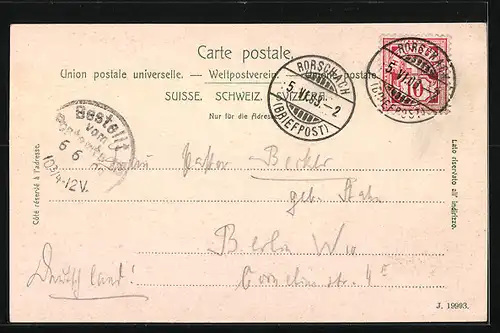 Carte postale.
Union postale universelle. — Weltpostverein. — postale
SUISSE. SCHWEIZ. SVIZZERA
Nur für die Adresse
RORSCHACH
5. VI.
2
(BRIEFPOST)
RORSCHACH
5. VI.
10
(BRIEFPOST)
Bestellt
vom
Postamte
6 6
10¾-12V.
Côté réservé à l'adresse.
Lato riservato all' indirizzo.
Frau Pastor Becker
geb.
Berlin W
Cornelius str. 4
Deutschland!
J. 19993.